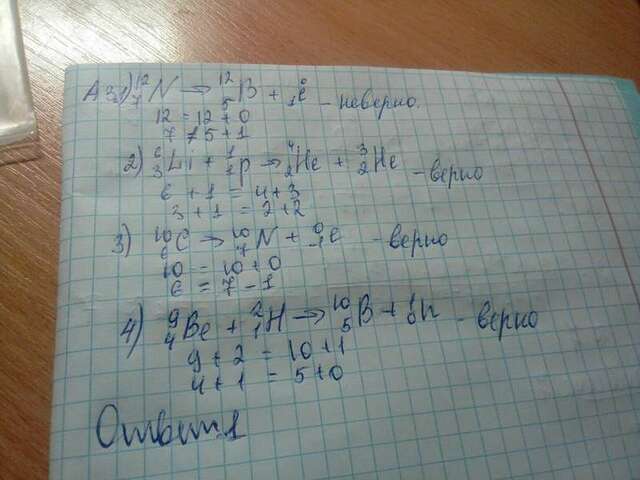 А3. 1) ¹²₇N → ¹²₅B + ⁰₁e - неверно.
12 = 12 + 0
7 ≠ 5 + 1
2) ⁶₃Li + ¹₁p → ⁴₂He + ³₂He - верно
6 + 1 = 4 + 3
3 + 1 = 2 + 2
3) ¹⁰₆C → ¹⁰₇N + ⁰₋₁e - верно
10 = 10 + 0
6 = 7 - 1
4) ⁹₄Be + ²₁H → ¹⁰₅B + ¹₀n - верно
9 + 2 = 10 + 1
4 + 1 = 5 + 0
Ответ: 1